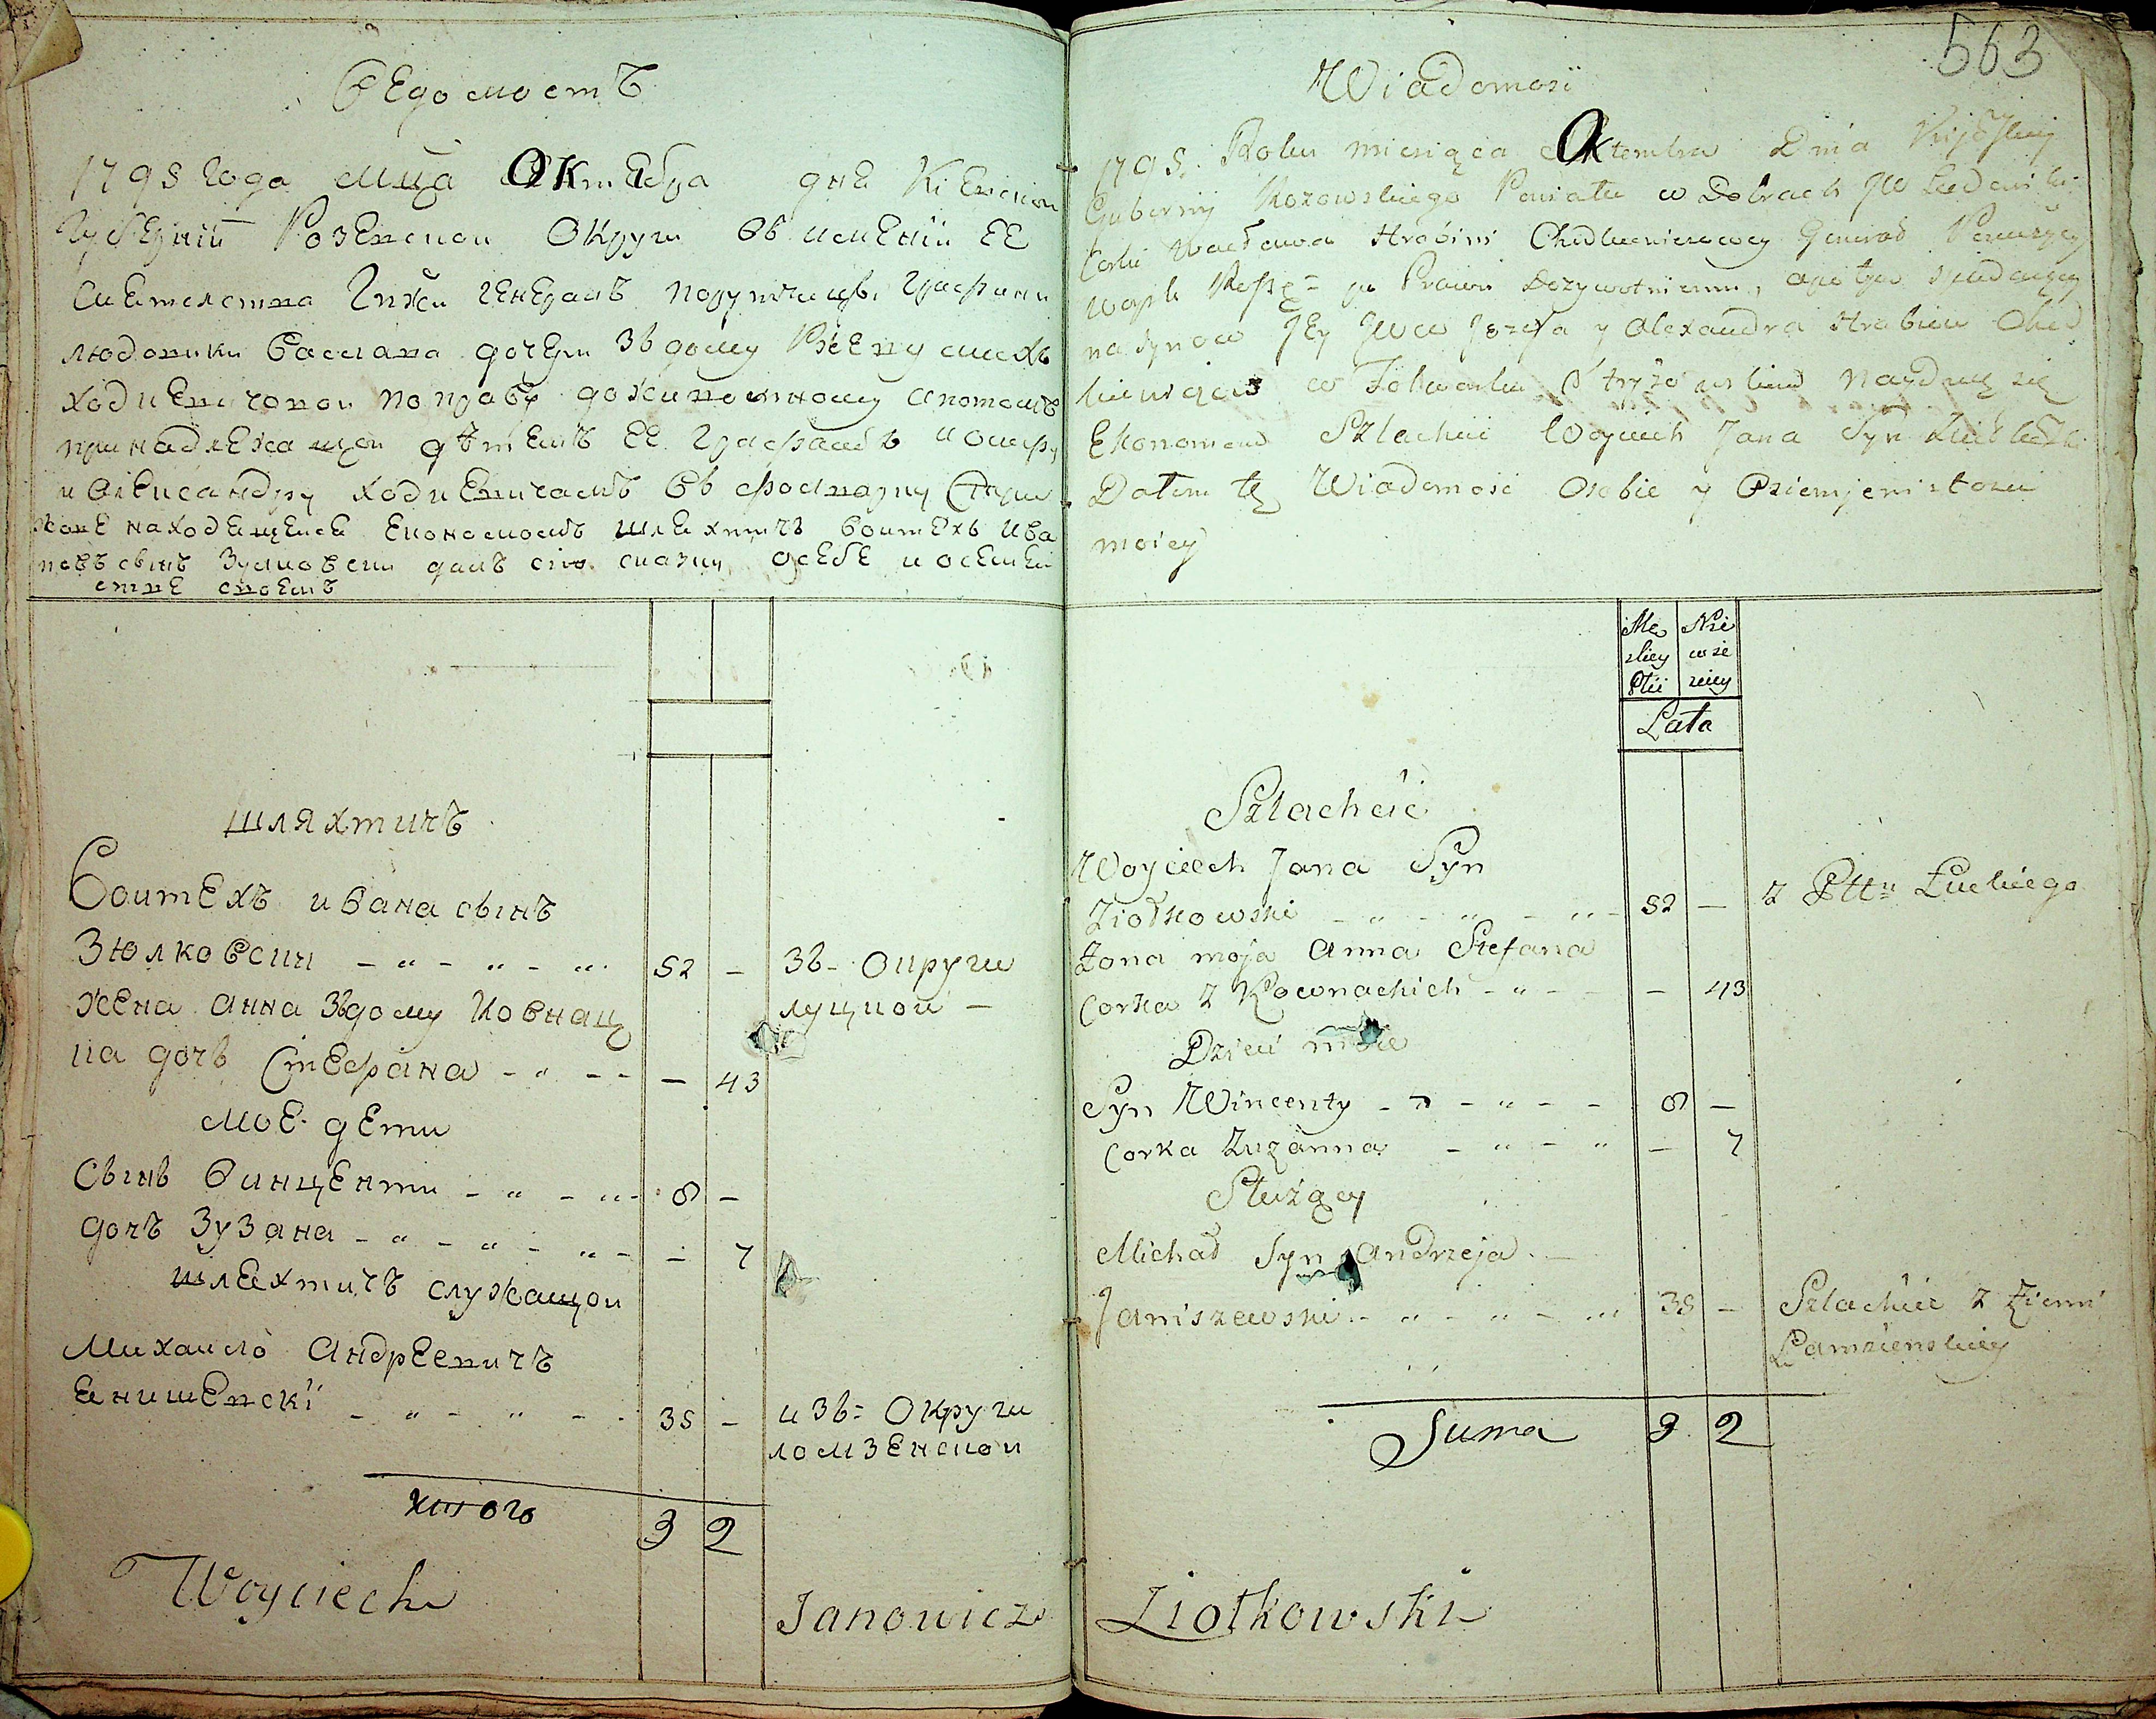 Ведомостъ
1795 года мца Октебра дне Киевской
Губерний Розевской Округи въ имений ее
Сиетелства Гпжи генералъ порутчицы графини
людовики Вацлава дочери зъ дому
ходкевичовой по праву доживотному а потомъ
принадлежащой детемъ ее графамъ иосифу
и Александру ходкевичамъ въ фолварку
находещейсе економомъ шлехтичъ воитехъ Ива
новъ сынъ Зулковски далъ сию сказку о себе и о семеи
стве своемъ
шляхтичъ
Воитехъ ивана сынъ
Зюлковски 52 — зъ Округи
луцкой —
жена Анна зъ дому Ковнацка
дочъ Стефана — 43
мое дети
Сынъ Винценти 8 —
дочъ Зузана — 7
шлехтичъ служащои
Михаило Андреевичъ
Енишевскї 35 — изъ Округи
ломзенской
итого 3 2
Woyciech Janowicz
563
Wiadomość
1795. Roku miesiąca Oktembra Dnia Kijowskiey
Guberny Rozowskiego Powiatu w Dobrach JW Ludowiki
Corki Wacława Hrabini Chodkiewiczowey Generał
po Prawu Dozywotniemu, a po tym
na Synow Jey JWW Jozefa y Alexandra Hrabiow Chod
kiewiczow w Folwarku nayduię się
Ekonomem Szlachcic Woyciech Jana Syn
Dałem tę Wiadomość o Sobie y
moiey
Mę Nie
zkiey wie
Płci sciey
Lata
Szlachcic
Woyciech Jana Syn
Ziołkowski 52 — z Pttu Łuckiego
Zona moja Anna Stefana
Corka z Kownackich — 43
Dzieci moie
Syn Wincenty 8 —
Corka Zuzanna — 7
Służący
Michał Syn Andrzeja
Janiszewski 35 — Szlachcic z Ziemi
Łamzienskiey
Suma 3 2
Ziołkowski